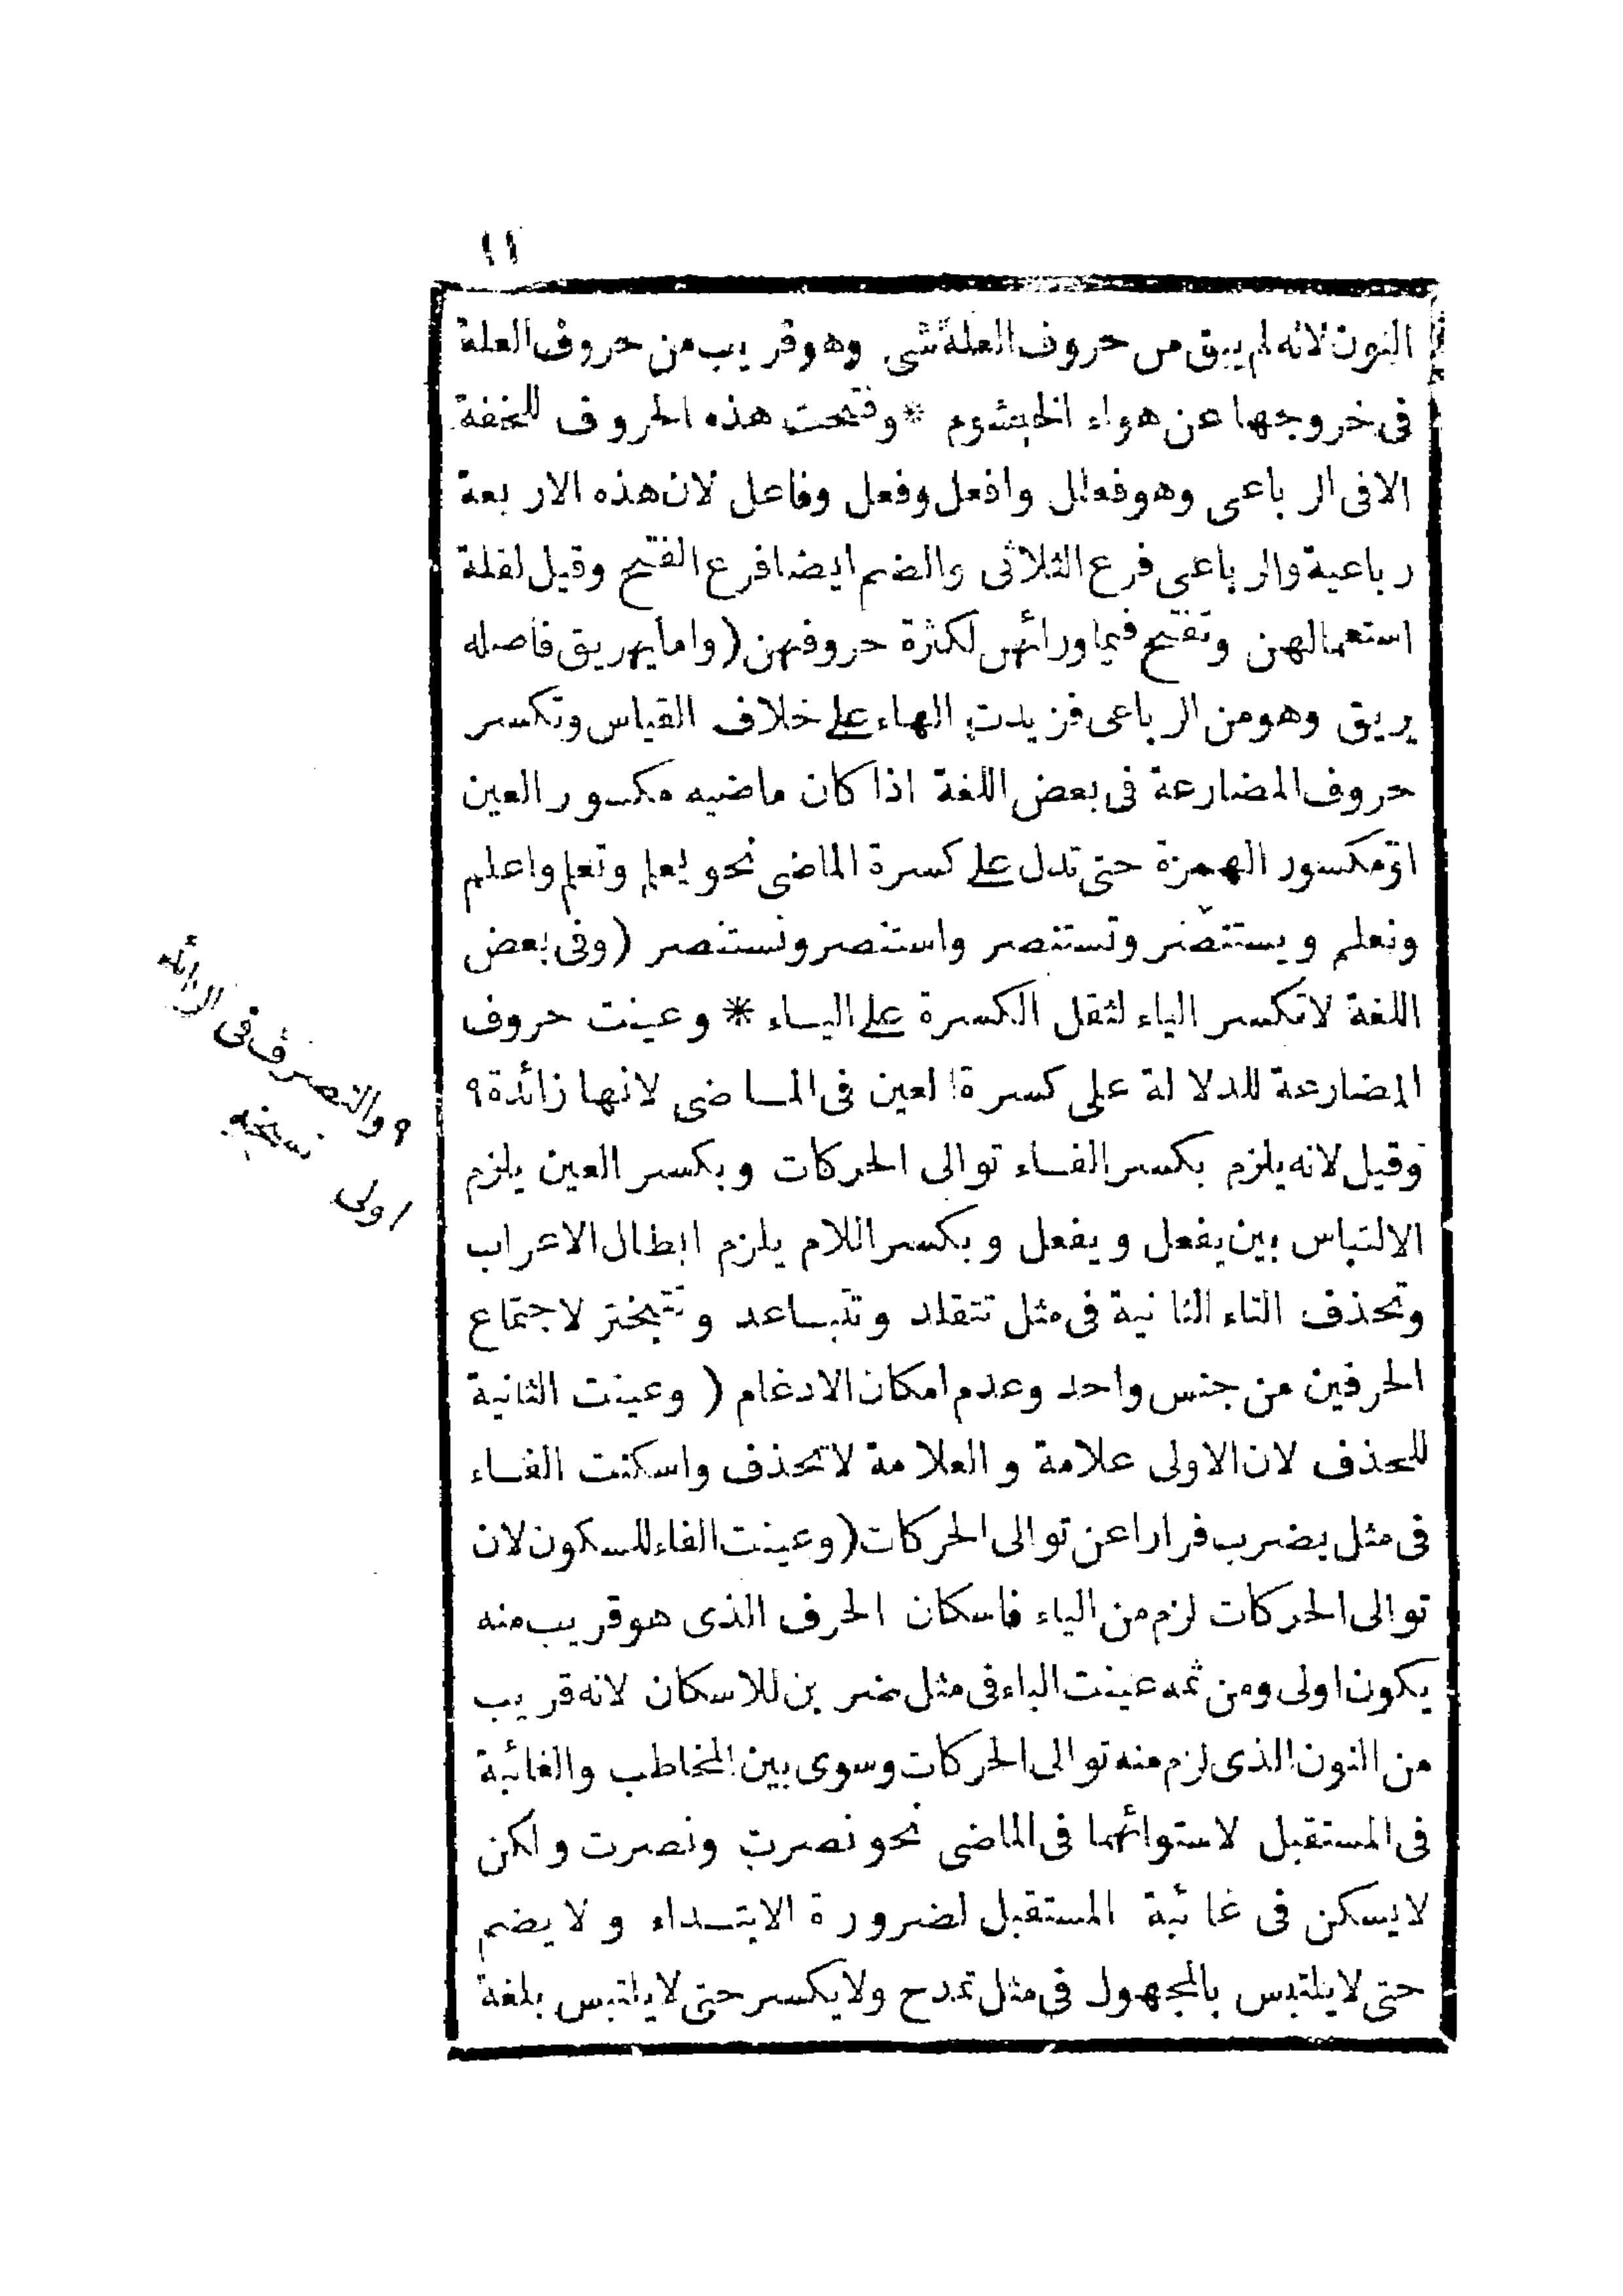 ١١
النون لانه لم يبق من حروف العلة شى وهو قريب من حروف العلة
فى خروجها عن هواء الخيشوم * وفتحت هذه الحروف للخفة
الا فى الرباعى وهو فعلل وافعل وفعل وفاعل لان هذه الاربعة
رباعية والرباعى فرع الثلاثى والضم ايضا فرع الفتح وقيل لقلة
استعمالهن وتفتح فيما ورائهن لكثرة حروفهن (واما يهريق فاصله
يريق وهو من الرباعى فزيدت الهاء على خلاف القياس وتكسر
حروف المضارعة فى بعض اللغة اذا كان ماضيه مكسور العين
او مكسور الهمزة حتى تدل على كسرة الماضى نحو يعلم وتعلم واعلم
ونعلم ويستنصر وتستنصر واستنصر ونستنصر (وفى بعض
اللغة لا تكسر الياء لثقل الكسرة على اليـاء * وعينت حروف
المضارعة للدلالة على كسرة العين فى المـاضى لانها زائدة ٩
وقيل لانه يلزم بكسر الفـاء توالى الحركات وبكسر العين يلزم
الالتباس بين يفعل ويفعل وبكسر اللام يلزم ابطال الاعراب
وتحذف التاء الثانية فى مثل تتقلد وتتبـاعد وتتبختر لاجتماع
الحرفين من جنس واحد وعدم امكان الادغام (وعينت الثانية
للحذف لان الاولى علامة والعلامة لا تحذف واسكنت الفـاء
فى مثل يضرب فرارا عن توالى الحركات (وعينت الفاء للسكون لان
توالى الحركات لزم من الياء فاسكان الحرف الذى هو قريب منه
يكون اولى ومن ثمه عينت الباء فى مثل ضربن للاسكان لانه قريب
من النون الذى لزم منه توالى الحركات وسوى بين المخاطب والغائبة
فى المستقبل لاستوائهما فى الماضى نحو نصرت ونصرت ولكن
لا يسكن فى غائبة المستقبل لضرورة الابتـداء ولا يضم
حتى لا يلتبس بالمجهول فى مثل تمدح ولا يكسر حتى لا يلتبس بلغة
٩ والتصرف فى الزائد
اولى نسخه